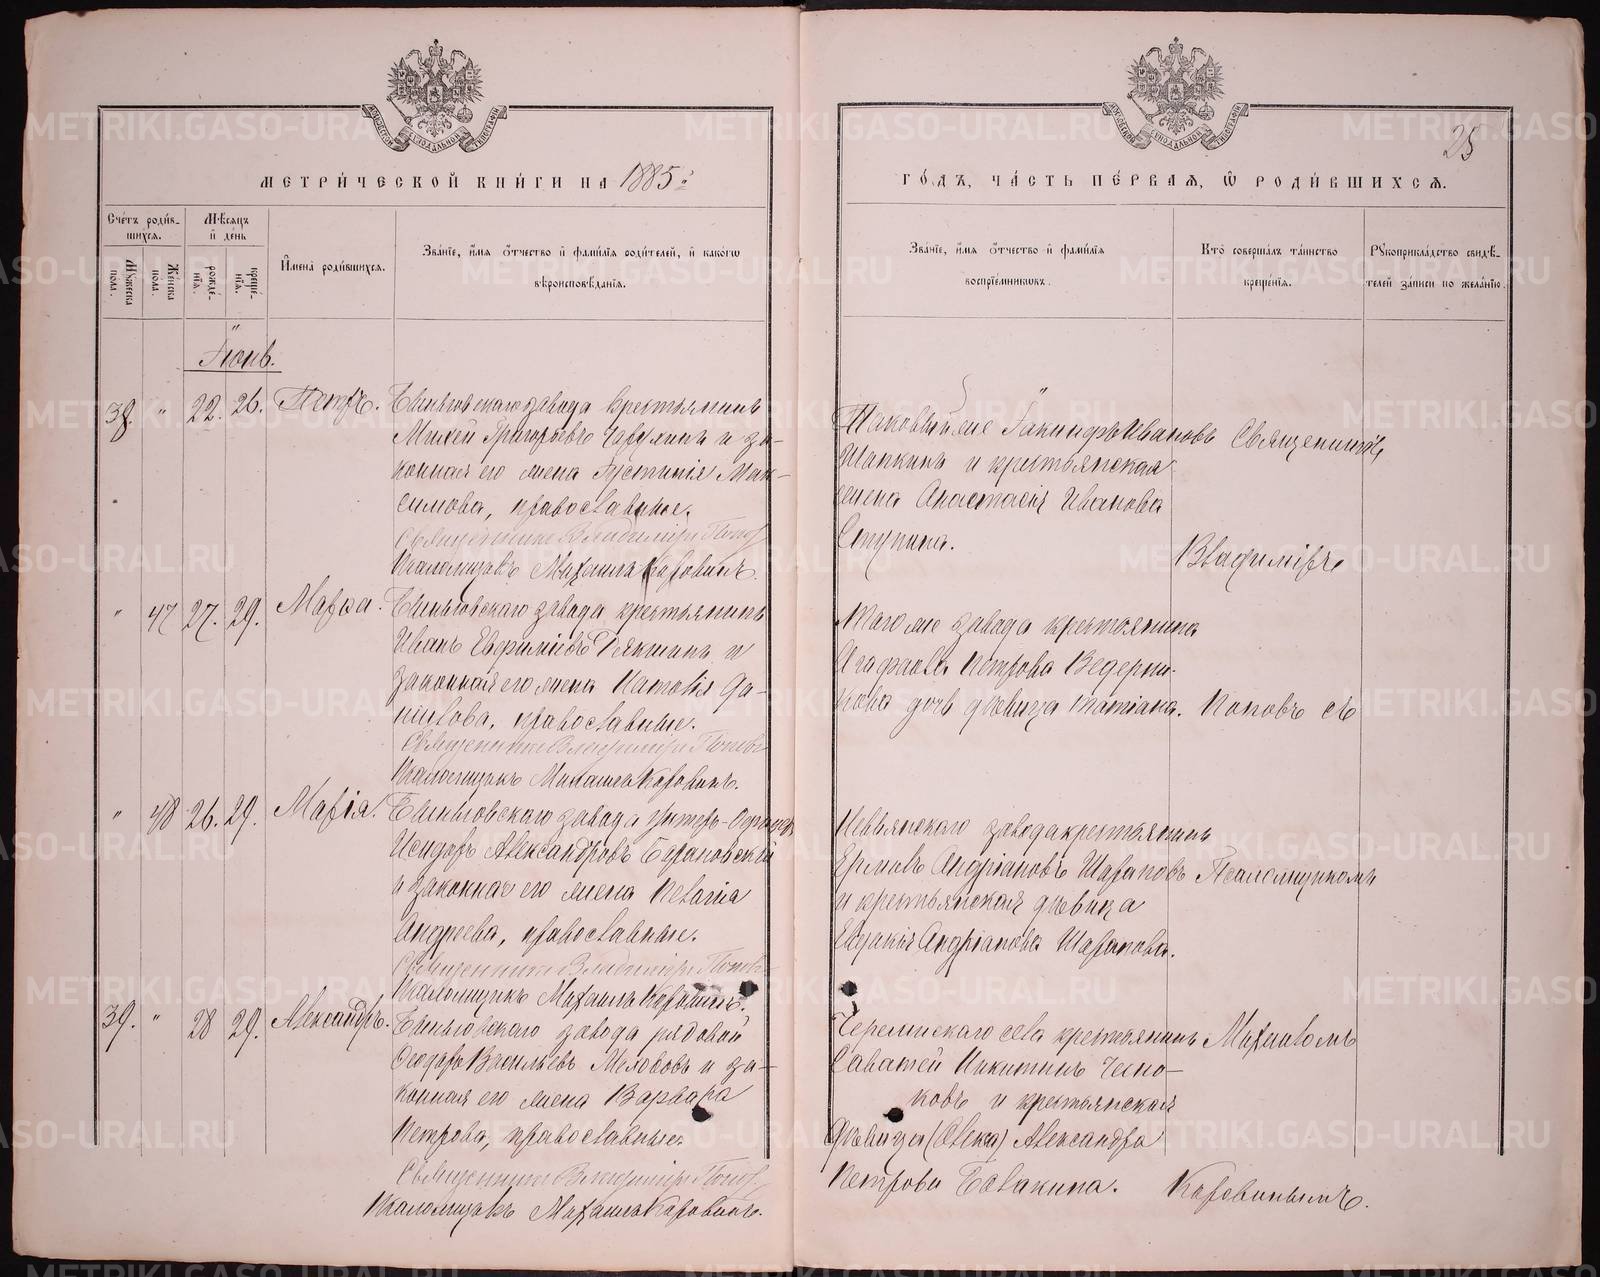 МЕТРИ́ЧЕСКОЙ КНИ́ГИ НА 1885 й
Сче́тъ роди́в-
шихся.
Му́жеска пола.
Же́нска пола.
Мѣ́сяцъ
и́ де́нь
рожде́-
нїѧ.
креще́-
нїѧ.
И҆мена̀ роди́вшихся.
Зва́нїе, и҆́мѧ ѻ҆́тчество и҆ фами́лїѧ роди́телей, и҆ како́гѡ
вѣроисповѣ́данїѧ.
Іюнь.
38. " 22. 26. Петръ.
Быньговскаго завода крестьянинъ
Михей Григорьевъ и за-
конная его жена Іустинія Мак-
симова, православные.
Священникъ Владиміръ Попов
Псаломщикъ Михаилъ Коровинъ.
" 47 27. 29. Марѳа.
Быньговскаго завода крестьянинъ
Иванъ Евфиміевъ и
законная его жена Наталія Да-
нилова, православные.
Священникъ Владиміръ Поповъ
Псаломщикъ Михаилъ Коровинъ.
" 48 26. 29. Марія.
Быньговскаго завода
Исидоръ Александровъ
и законная его жена Пелагія
Андреева, православные.
Священникъ Владиміръ Поповъ
Псаломщикъ Михаилъ Коровинъ.
39. " 28 29. Александръ.
Быньговскаго завода рядовой
Ѳеодоръ Васильевъ Мехововъ и за-
конная его жена Варвара
Петрова, православные.
Священникъ Владиміръ Попов
Псаломщикъ Михаилъ Коровинъ.
25
ГО́ДЪ, ЧА́СТЬ ПЕ́РВАѦ, Ѡ҆ РОДИ́ВШИХСѦ.
Зва́нїе, и҆́мѧ ѻ҆́тчество и҆ фами́лїѧ
воспрїе́мникѡвъ.
Кто̀ соверша́лъ та́инство
креще́нїѧ.
Рꙋкоприкла́дство свидѣ́-
телей за́писи по жела́нїю.
Таковый же Іакинфъ Ивановъ
Шапкинъ и крестьянская
жена Анастасія Иванова
Ступина.
Священникъ
Владиміръ
Того же завода крестьянина
Агафона Петрова Ведерни-
кова дочь дѣвица Татіана.
Поповъ съ
Невьянскаго завода крестьянинъ
Андріановъ Шараповъ
и крестьянская дѣвица
Евдокія Андріанова Шарапова.
Псаломщикомъ
Черемисскаго села крестьянинъ
Саватей Никитинъ Чесно-
ковъ и крестьянская
дѣвица (Олека) Александра
Петрова Балакина.
Михаиломъ
Коровинымъ.
METRIKI.GASO-URAL.RU